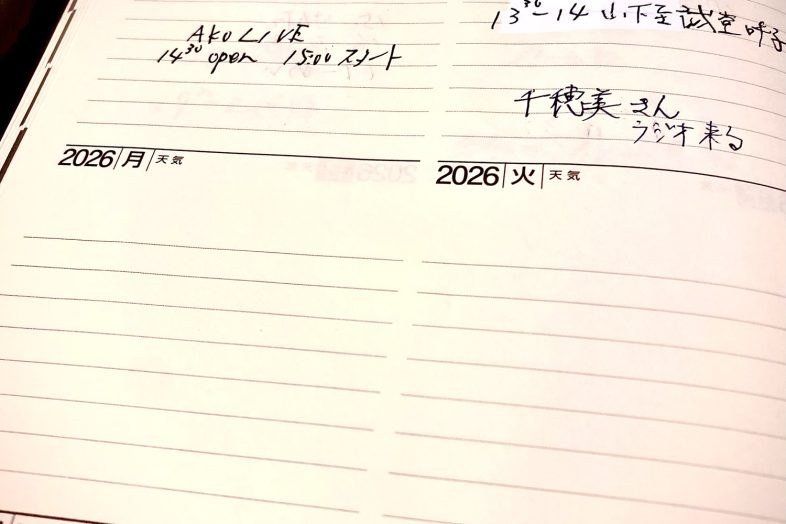 AKO LIVE
14³⁰ open 15:00 スタート
13³⁰-14 山下至誠堂 呼子
千穂美さん
ラジオ来る
2026 月 天気
2026 火 天気